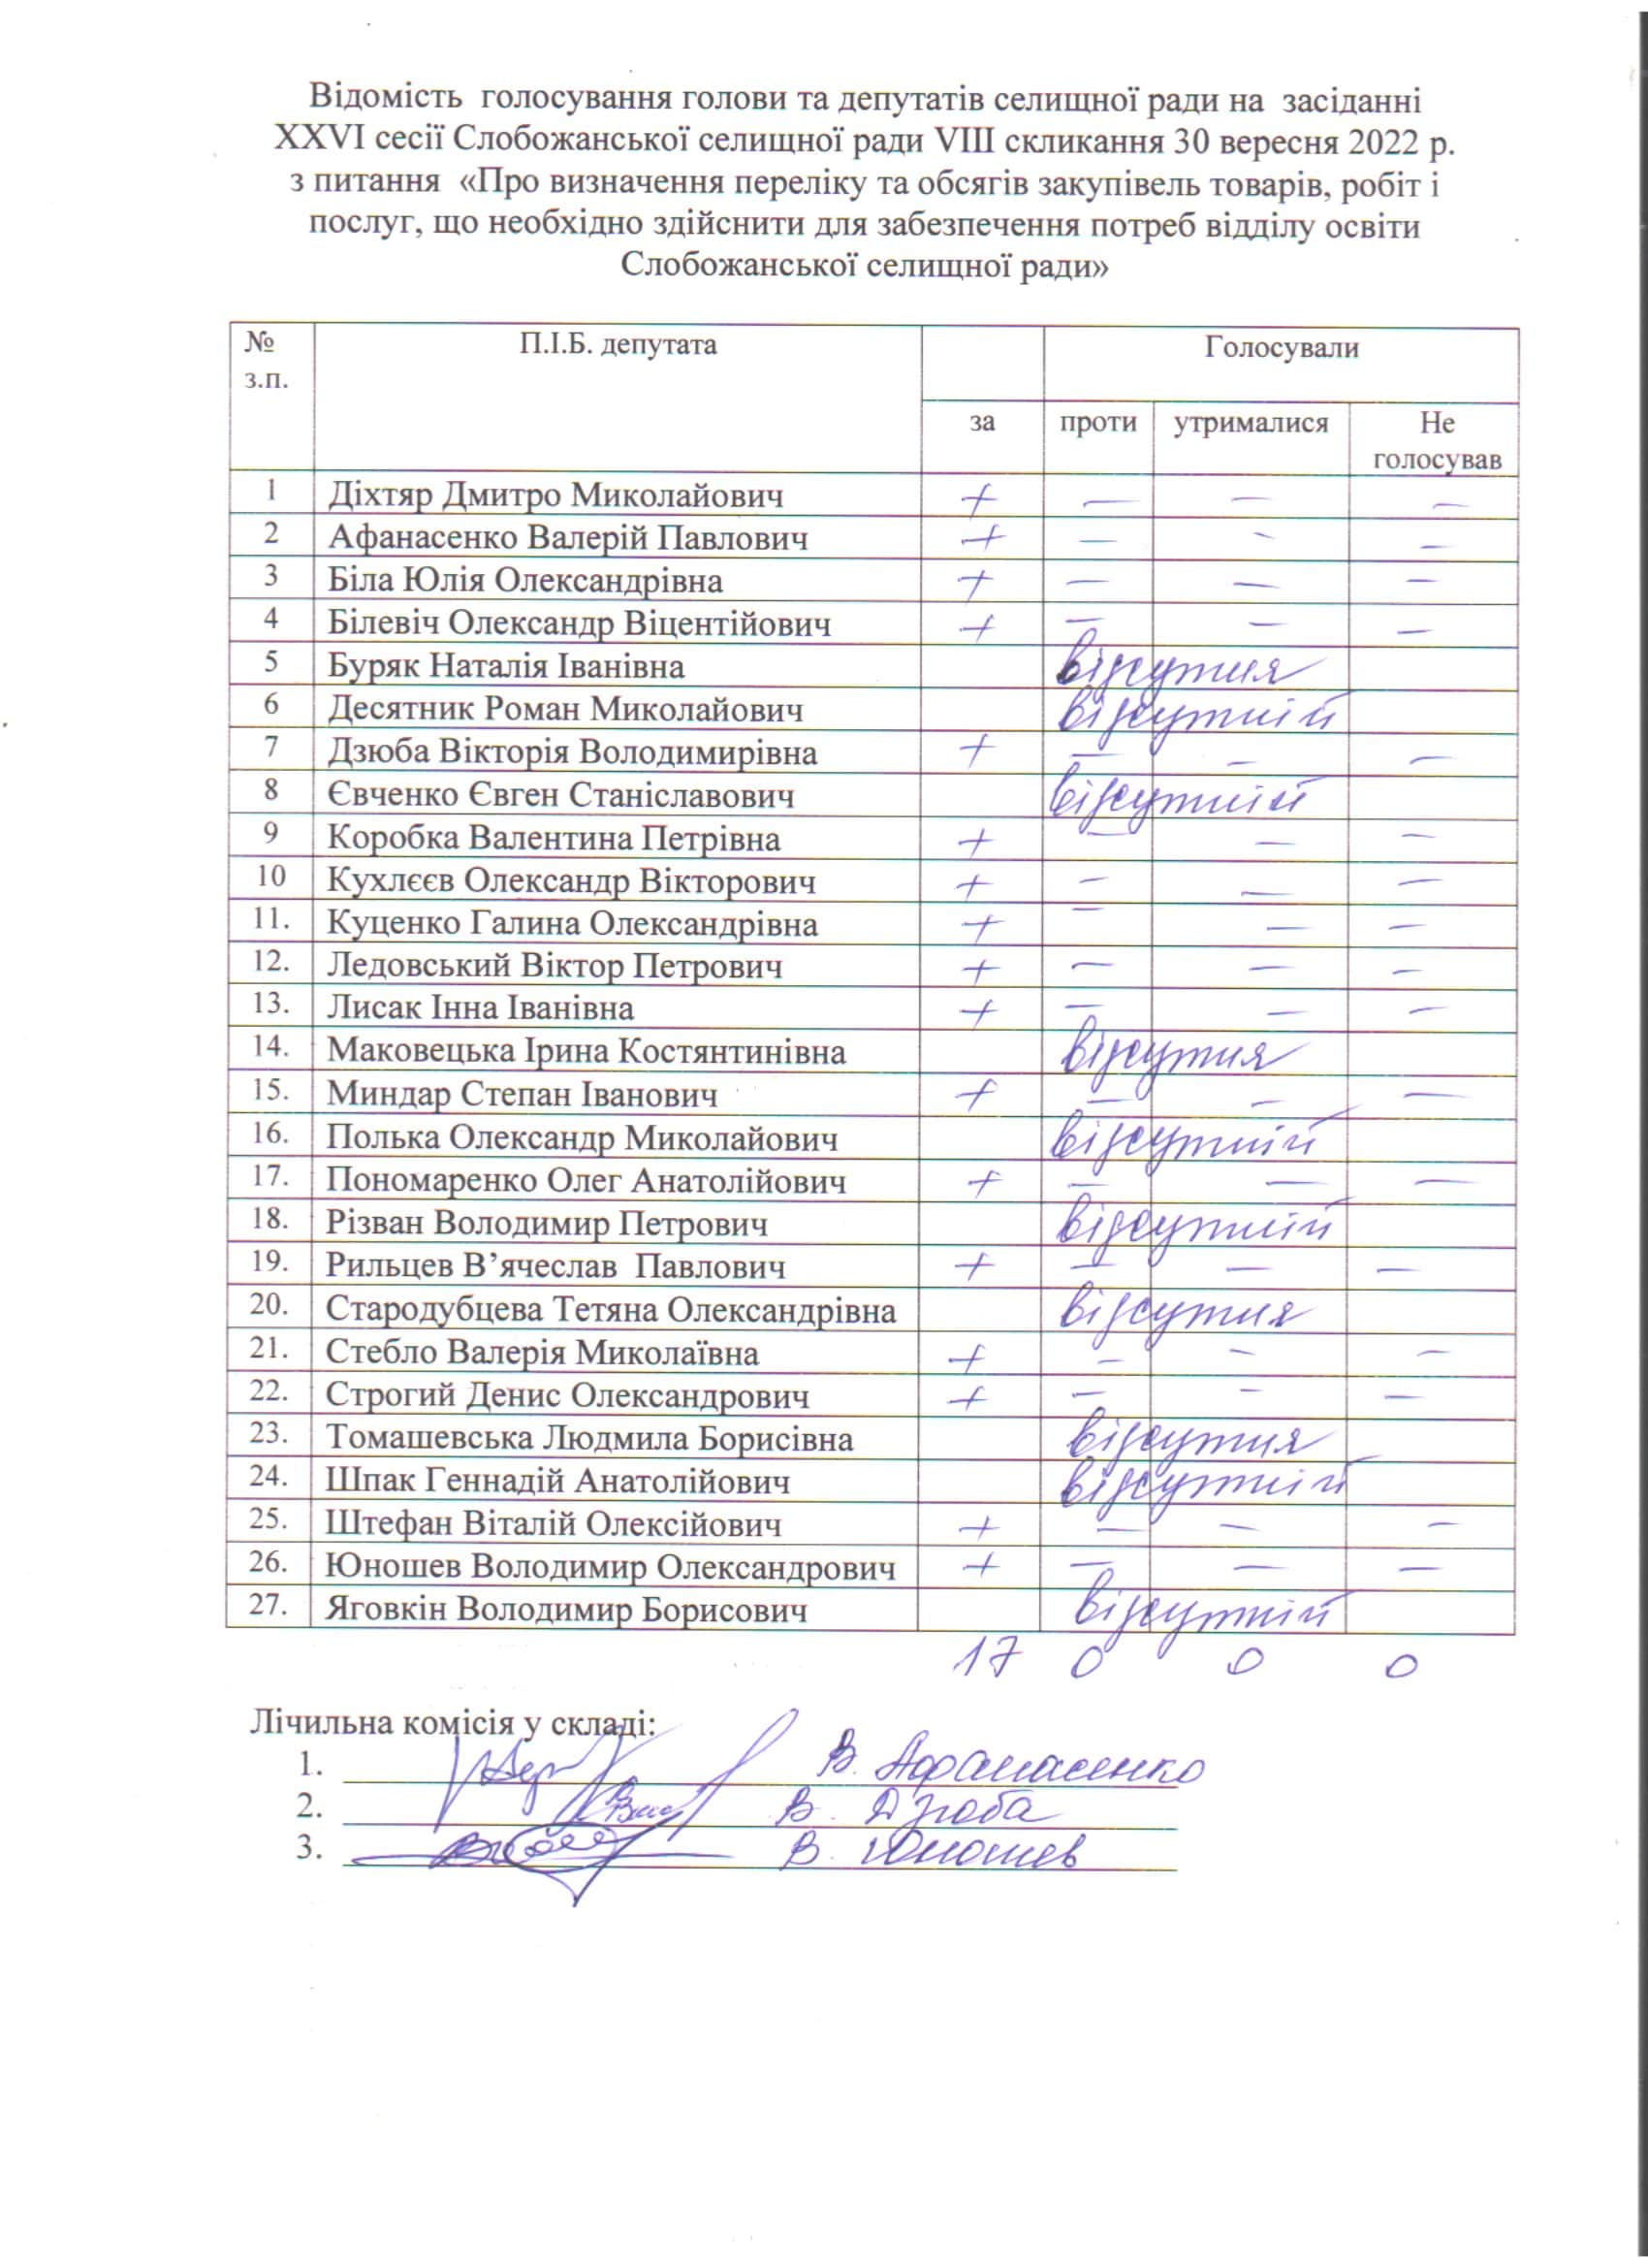 Відомість голосування голови та депутатів селищної ради на засіданні
XXVI сесії Слобожанської селищної ради VIII скликання 30 вересня 2022 р.
з питання «Про визначення переліку та обсягів закупівель товарів, робіт і
послуг, що необхідно здійснити для забезпечення потреб відділу освіти
Слобожанської селищної ради»
№ з.п. П.І.Б. депутата Голосували
за проти утрималися Не голосував
1 Діхтяр Дмитро Миколайович + — — —
2 Афанасенко Валерій Павлович + — — —
3 Біла Юлія Олександрівна + — — —
4 Білевіч Олександр Віцентійович + — — —
5 Буряк Наталія Іванівна відсутня
6 Десятник Роман Миколайович відсутній
7 Дзюба Вікторія Володимирівна + — — —
8 Євченко Євген Станіславович відсутній
9 Коробка Валентина Петрівна + — — —
10 Кухлєєв Олександр Вікторович + — — —
11. Куценко Галина Олександрівна + — — —
12. Ледовський Віктор Петрович + — — —
13. Лисак Інна Іванівна + — — —
14. Маковецька Ірина Костянтинівна відсутня
15. Миндар Степан Іванович + — — —
16. Полька Олександр Миколайович відсутній
17. Пономаренко Олег Анатолійович + — — —
18. Різван Володимир Петрович відсутній
19. Рильцев В’ячеслав Павлович + — — —
20. Стародубцева Тетяна Олександрівна відсутня
21. Стебло Валерія Миколаївна + — — —
22. Строгий Денис Олександрович + — — —
23. Томашевська Людмила Борисівна відсутня
24. Шпак Геннадій Анатолійович відсутній
25. Штефан Віталій Олексійович + — — —
26. Юношев Володимир Олександрович + — — —
27. Яговкін Володимир Борисович відсутній
17 0 0 0
Лічильна комісія у складі:
1. В. Афанасенко
2. В. Дзюба
3. В. Юношев